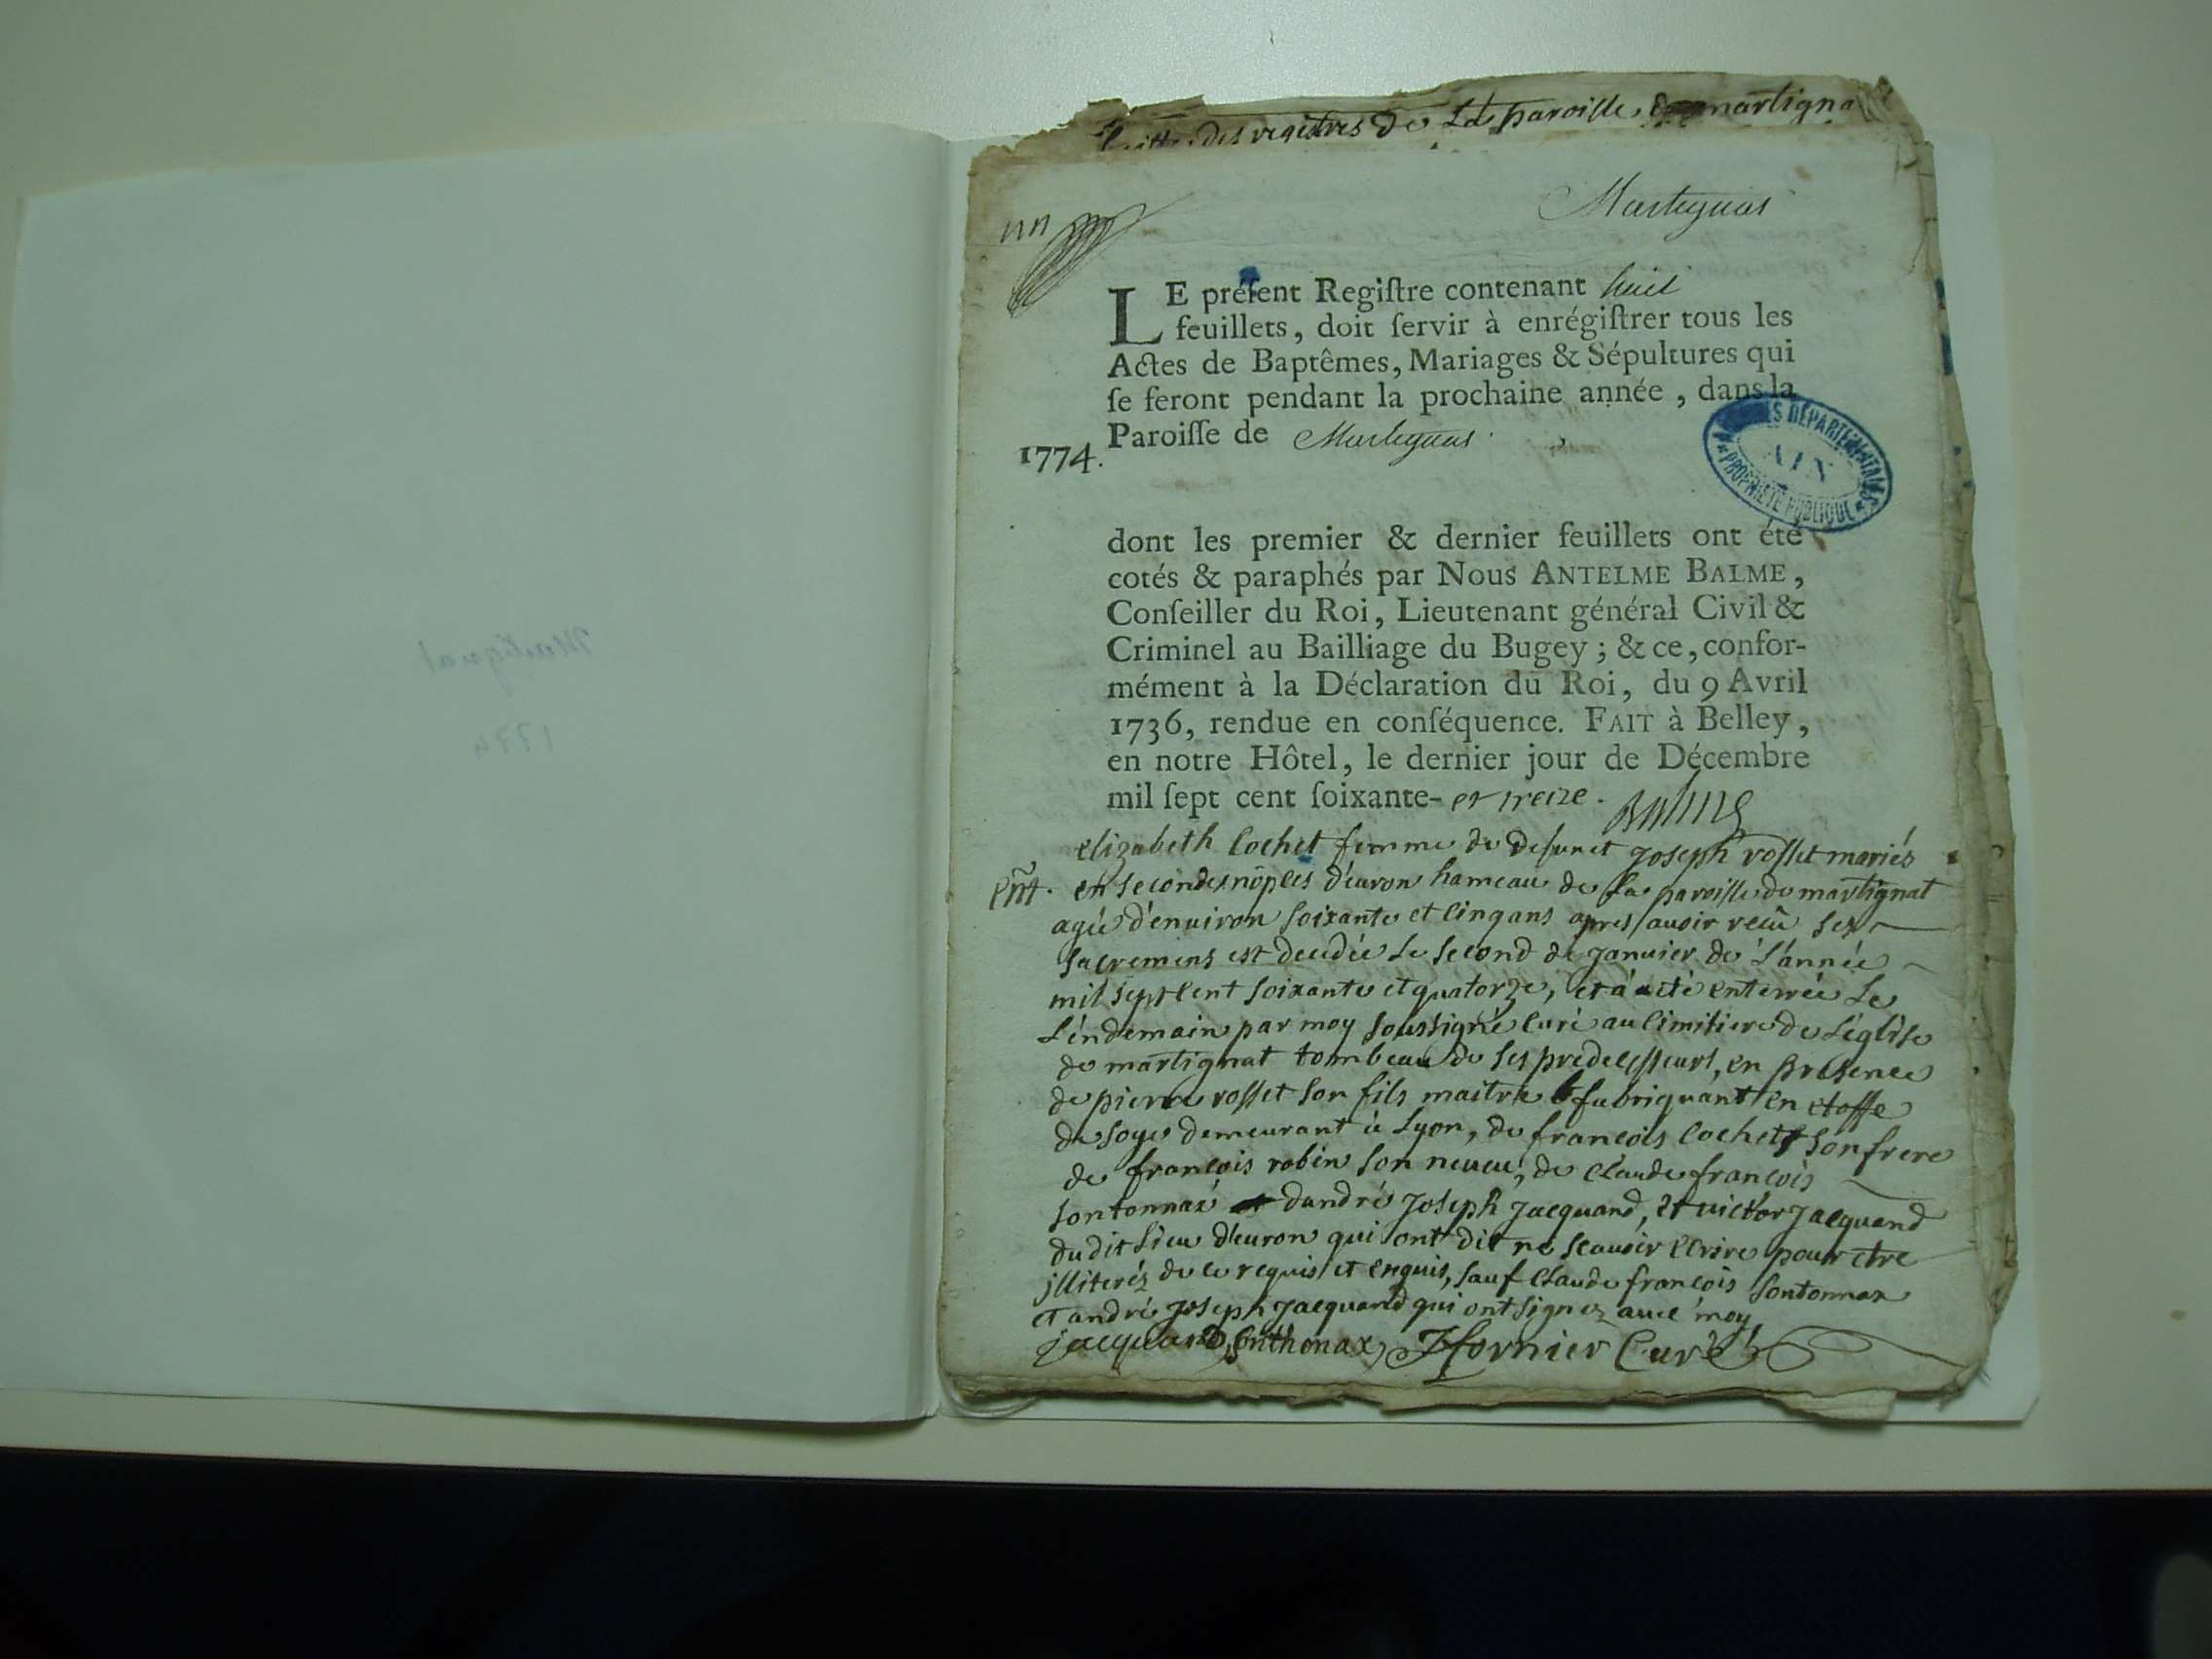 des registres de La paroisse de martigna
Martignat
LE préſent Regiſtre contenant huit
feuillets, doit ſervir à enrégiſtrer tous les
Actes de Baptêmes, Mariages & Sépultures qui
ſe feront pendant la prochaine année, dans la
Paroiſſe de Martignat
1774.
ARCHIVES DÉPARTEMENTALES
AIN
PROPRIÉTÉ PUBLIQUE
dont les premier & dernier feuillets ont été
cotés & paraphés par Nous ANTELME BALME,
Conſeiller du Roi, Lieutenant général Civil &
Criminel au Bailliage du Bugey ; & ce, confor-
mément à la Déclaration du Roi, du 9 Avril
1736, rendue en conſéquence. FAIT à Belley,
en notre Hôtel, le dernier jour de Décembre
mil ſept cent ſoixante- et treize. Balme
elizabeth Cochet femme de defunct Joseph rosset mariés
en secondes nôpces d'evron hameau de La paroisse de martignat
agée d'environ soixante et cinq ans apres avoir recû ses
sacremens est decedée Le second de Janvier de L'année
mil sept cent soixante et quatorze, et à eté enterrée Le
L'endemain par moy soussigné curé au cimitiere de L'église
de martignat tombeau de ses predecesseurs, en presence
de pierre rosset son fils maitre fabriquant en etoffe
de soye demeurant à Lyon, de francois Cochet son frere
de francois robin son neveu, de Claude francois
sontonnax d'andré Joseph Jacquand, et victor Jacquand
dudit Lieu d'evron qui ont dit ne scavoir ecrire pour etre
jlliteréz de ce requis et enquis, sauf Claude francois sontonnax
et andré Joseph Jacquand qui ont signez avec moy
jacquand, Sonthonax, fornier Curé
Martignat
1774